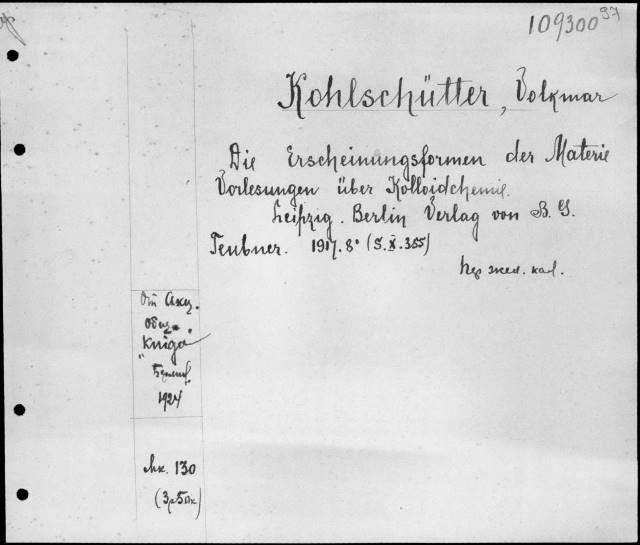 109300 97
Kohlschütter, Volkmar
Die Erscheinungsformen der Materie
Vorlesungen über Kolloidchemie.
Leipzig. Berlin Verlag von B. G.
Teubner. 1917. 8° (S. X. 355)
От Акц.
Общ.
"Книга"
1924
Мк. 130